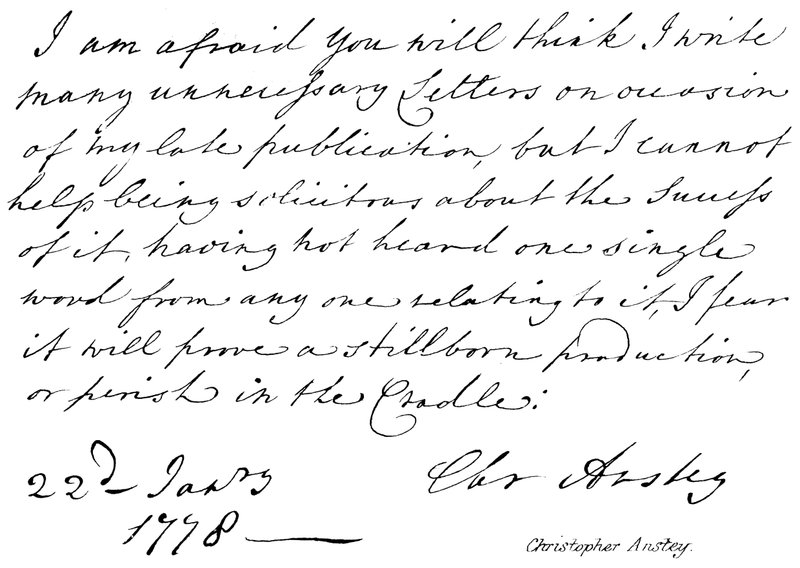 I am afraid You will think I write
many unnecessary Letters on occasion
of my late publication, but I cannot
help being solicitous about the Success
of it, having not heard one single
word from any one relating to it, I fear
it will prove a stillborn production,
or perish in the Cradle:
22d Janry
1778
Chr Anstey
Christopher Anstey.